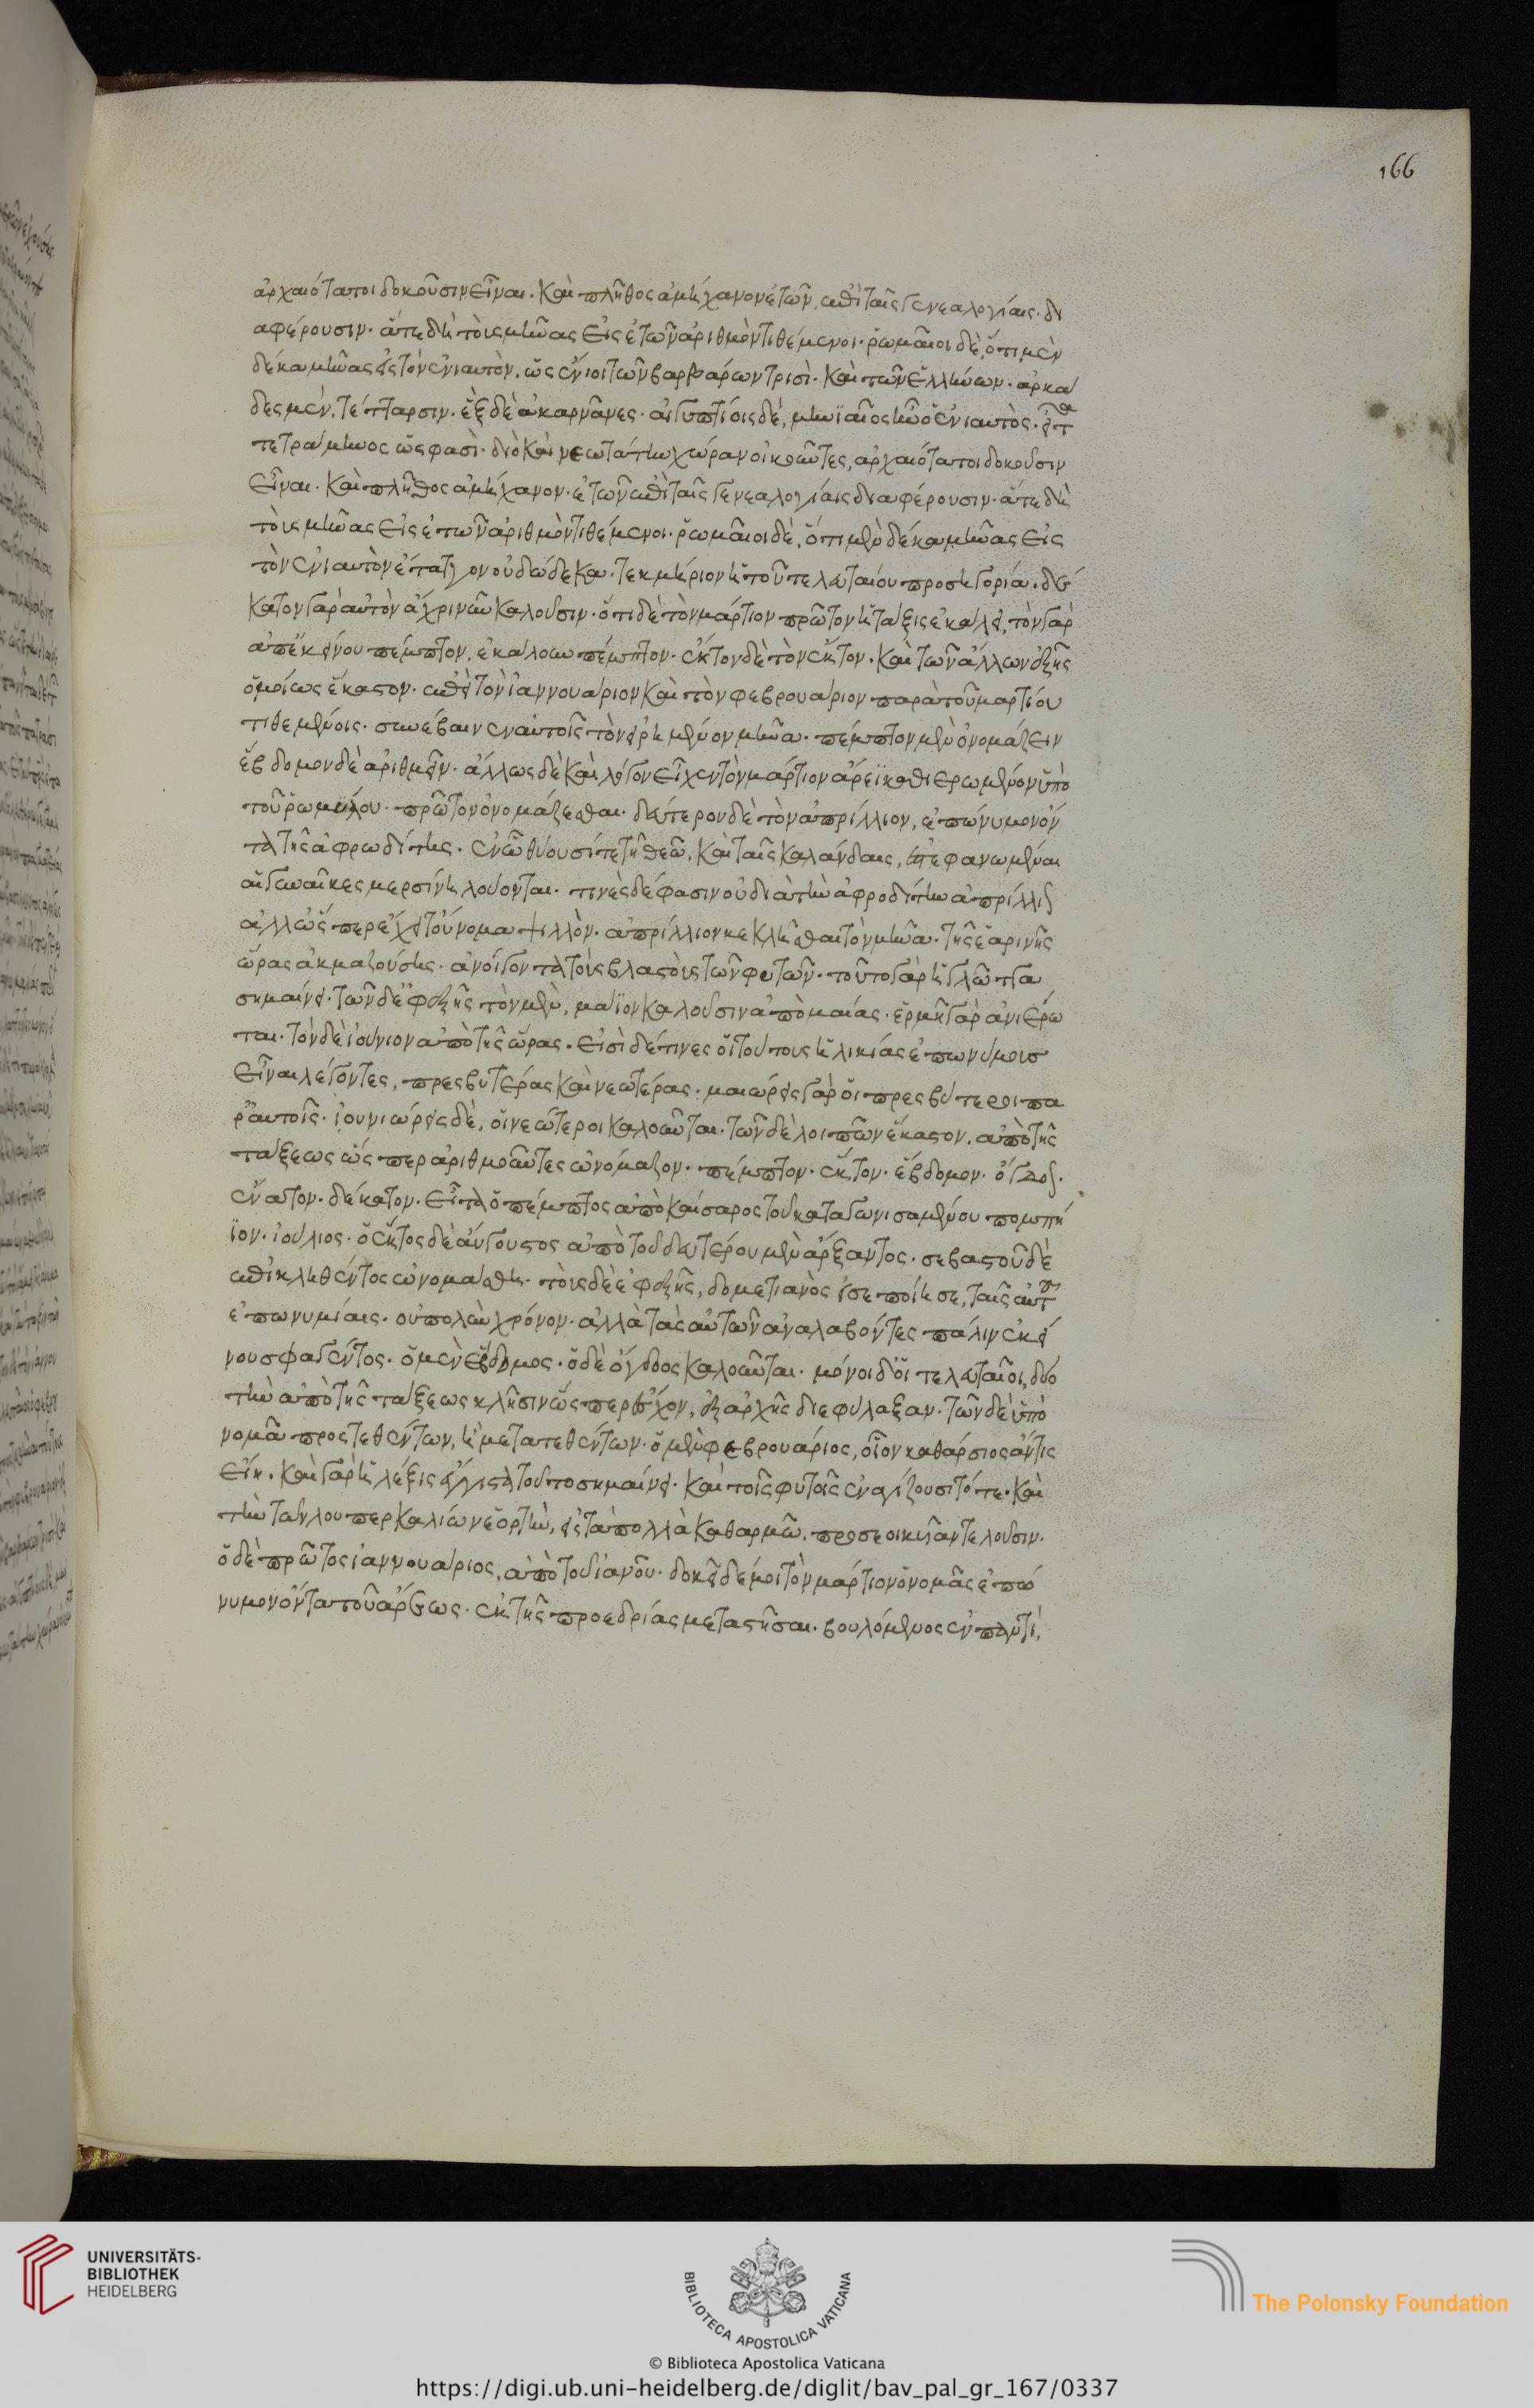 166
ἀρχαιότατοι δοκοῦσιν εἶναι. καὶ πλῆθος ἀμήχανον ἐτῶν, ἐπὶ ταῖς γενεαλογίαις δι
αφέρουσιν. ἅτε δὴ τοὺς μῆνας εἰς ἐτῶν ἀριθμὸν τιθέμενοι. ῥωμαῖοι δὲ, ὅτι μὲν
δέκα μῆνας εἰς τὸν ἐνιαυτὸν, ὡς ἔνιοι τῶν βαρβάρων τρισὶ. καὶ τῶν ἑλλήνων. ἀρκά
δες μὲν, τέτταρσιν. ἓξ δὲ ἀκαρνᾶνες. αἰγυπτίοις δὲ, μηνϊαῖος ἦν ὁ ἐνιαυτὸς. εἶτα
τετράμηνος ὥς φασὶ. διὸ καὶ νεωτάτην χώραν οἰκοῦντες, ἀρχαιότατοι δοκοῦσιν
εἶναι. καὶ πλῆθος ἀμήχανον. ἐτῶν ἐπὶ ταῖς γενεαλογίαις διαφέρουσιν. ἅτε δὴ
τοὺς μῆνας εἰς ἐτῶν ἀριθμὸν τιθέμενοι. ῥωμαῖοι δὲ, ὅτι μὲν δέκα μῆνας εἰς
τὸν ἐνιαυτὸν ἔταττον οὐ δώδεκα. τεκμήριον ἡ τοῦ τελευταίου προσηγορία. δε
κατον γὰρ αὐτὸν ἄχρι νῦν καλοῦσιν. ὅτι δὲ τὸν μάρτιον πρῶτον ἡ τάξις ἐκάλει, τὸν γὰρ
ἀπ' ἐκείνου πέμπτον, ἐκάλουν πέμπτον. ἕκτον δὲ τὸν ἕκτον. καὶ τῶν ἄλλων ἑξῆς
ὁμοίως ἕκαστον. ἐπεὶ τὸν ἰαννουάριον καὶ τὸν φεβρουάριον παρὰ τοῦ μαρτίου
τιθεμένοις. συνέβαινεν αὐτοῖς τὸν εἰρημένον μῆνα. πέμπτον μὲν ὀνομάζειν
ἕβδομον δὲ ἀριθμεῖν. ἄλλως δὲ καὶ λόγον εἶχεν τὸν μάρτιον ἄρεϊ καθιερωμένον ὑπὸ
τοῦ ῥωμύλου. πρῶτον ὀνομάζεσθαι. δεύτερον δὲ τὸν ἀπρίλλιον, ἐπώνυμον ὄν
τα τῆς ἀφροδίτης. ἐν ᾧ θύουσί τε τῇ θεῷ. καὶ ταῖς καλάνδαις, ἐστεφανωμέναι
αἱ γυναῖκες μερσίνῃ λούονται. τινὲς δέ φασιν οὐ διὰ τὴν ἀφροδίτην ἀπρίλλιον
ἀλλ' ὥσπερ ἔχει τοὔνομα ψιλλὸν. ἀπρίλλιον κεκλῆσθαι τὸν μῆνα. τῆς ἐαρινῆς
ὥρας ἀκμαζούσης. ἀνοίγοντα τοὺς βλαστοὺς τῶν φυτῶν. τοῦτο γὰρ ἡ γλῶττα
σημαίνει. τῶν δὲ ἐφεξῆς τὸν μὲν, μαϊον καλοῦσιν ἀπὸ μαίας. ἑρμῇ γὰρ ἀνιέρω
ται. τὸν δὲ ἰούνιον ἀπὸ τῆς ὥρας. εἰσὶ δέ τινες οἳ τούτους ἡλικίας ἐπωνύμους
εἶναι λέγοντες, πρεσβυτέρας καὶ νεωτέρας. μαιώρεις γὰρ οἱ πρεσβύτεροι πα
ρ' αὐτοῖς. ἰουνιώρεις δὲ, οἱ νεώτεροι καλοῦνται. τῶν δὲ λοιπῶν ἕκαστον, ἀπὸ τῆς
τάξεως ὥσπερ ἀριθμοῦντες ὠνόμαζον. πέμπτον. ἕκτον. ἕβδομον. ὄγδοον.
ἔνατον. δέκατον. εἶτα ὁ πέμπτος ἀπὸ καίσαρος τοῦ καταγωνισαμένου πομπή
ϊον. ἰούλιος. ὁ ἕκτος δὲ ἀύγουστος ἀπὸ τοῦ δευτέρου μὲν ἄρξαντος. σεβαστοῦ δὲ
ἐπικληθέντος ὠνομάσθη. τοὺς δὲ ἐφεξῆς, δομετιανὸς εἰσεποίησε, ταῖς αὐτοῦ
ἐπωνυμίαις. οὐ πολὺν χρόνον. ἀλλὰ τὰς αὐτῶν ἀναλαβόντες πάλιν ἐκεί
νου σφαγέντος. ὁ μὲν ἕβδομος. ὁ δὲ ὄγδοος καλοῦνται. μόνοι δ' οἱ τελευταῖοι, δύο
τὴν ἀπὸ τῆς τάξεως κλῆσιν ὥσπερ εἶχον, ἐξ ἀρχῆς διεφύλαξαν. τῶν δὲ ὑπὸ
νομᾶ προστεθέντων, ἢ μετατεθέντων. ὁ μὲν φεβρουάριος, οἷον καθάρσιος ἄν τις
εἴη. καὶ γὰρ ἡ λέξις ἔγγιστα τοῦτο σημαίνει. καὶ τοῖς φυτοῖς ἐναγίζουσι τότε. καὶ
τὴν τῶν λουπερκαλίων ἑορτὴν, εἰς τὰ πολλὰ καθαρμῶ. προσεοικυῖαν τελοῦσιν.
ὁ δὲ πρῶτος ἰαννουάριος, ἀπὸ τοῦ ἰανοῦ. δοκεῖ δέ μοι τὸν μάρτιον ὁ νομᾶς ἐπώ
νυμον ὄντα τοῦ ἄρεως. ἐκ τῆς προεδρίας μεταστῆσαι. βουλόμενος ἐν παντὶ,
UNIVERSITÄTS-
BIBLIOTHEK
HEIDELBERG
BIBLIOTECA APOSTOLICA VATICANA
The Polonsky Foundation
© Biblioteca Apostolica Vaticana
https://digi.ub.uni-heidelberg.de/diglit/bav_pal_gr_167/0337